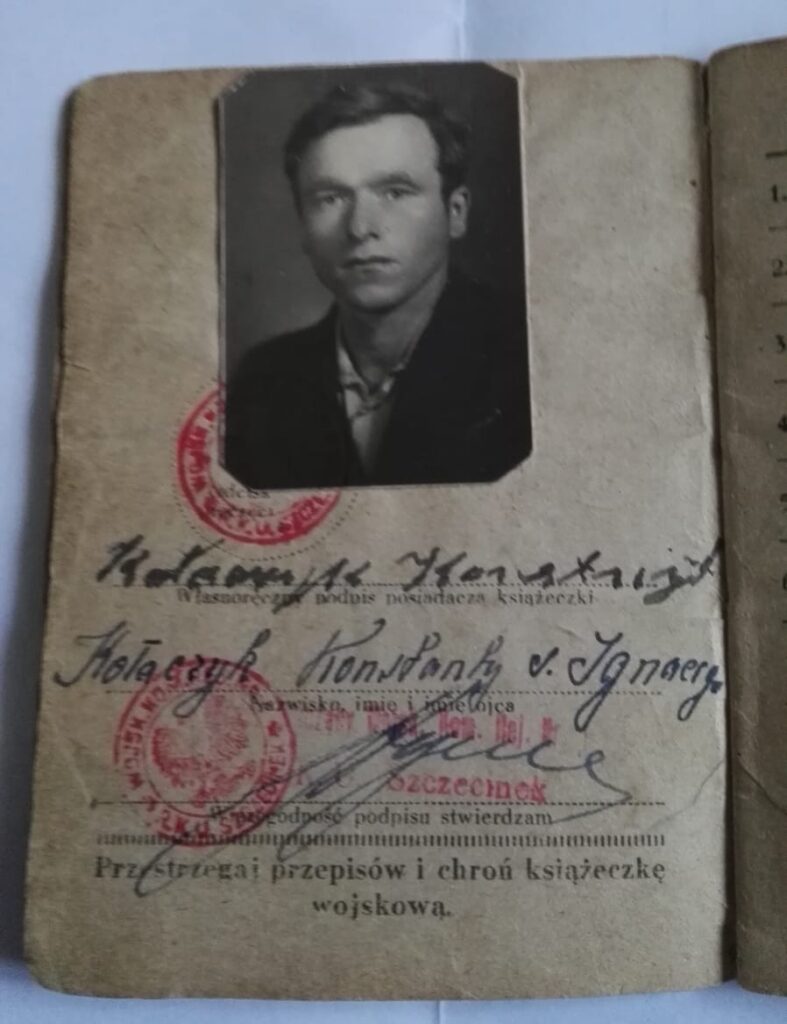 WOJSK
Kołaczyk
Własnoręczny podpis posiadacza książeczki
Kołaczyk Konstanty s. Ignacego
Nazwisko, imię i imię ojca
WOJSK.
Kom. Rej. Nr
Szczecinek
Wiarygodność podpisu stwierdzam
Przestrzegaj przepisów i chroń książeczkę
wojskową.
1.
2.
3.